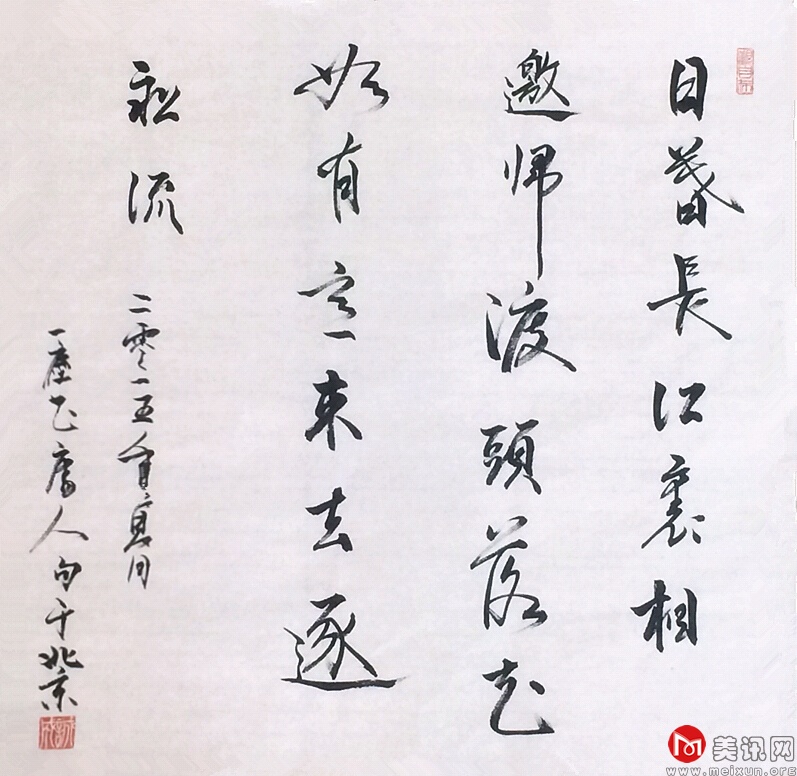 日暮長江裏相
邀歸渡頭落花
如有意来去逐
船流
二零一五年夏月
一塵书唐人句于北京
美讯网
www.meixun.org